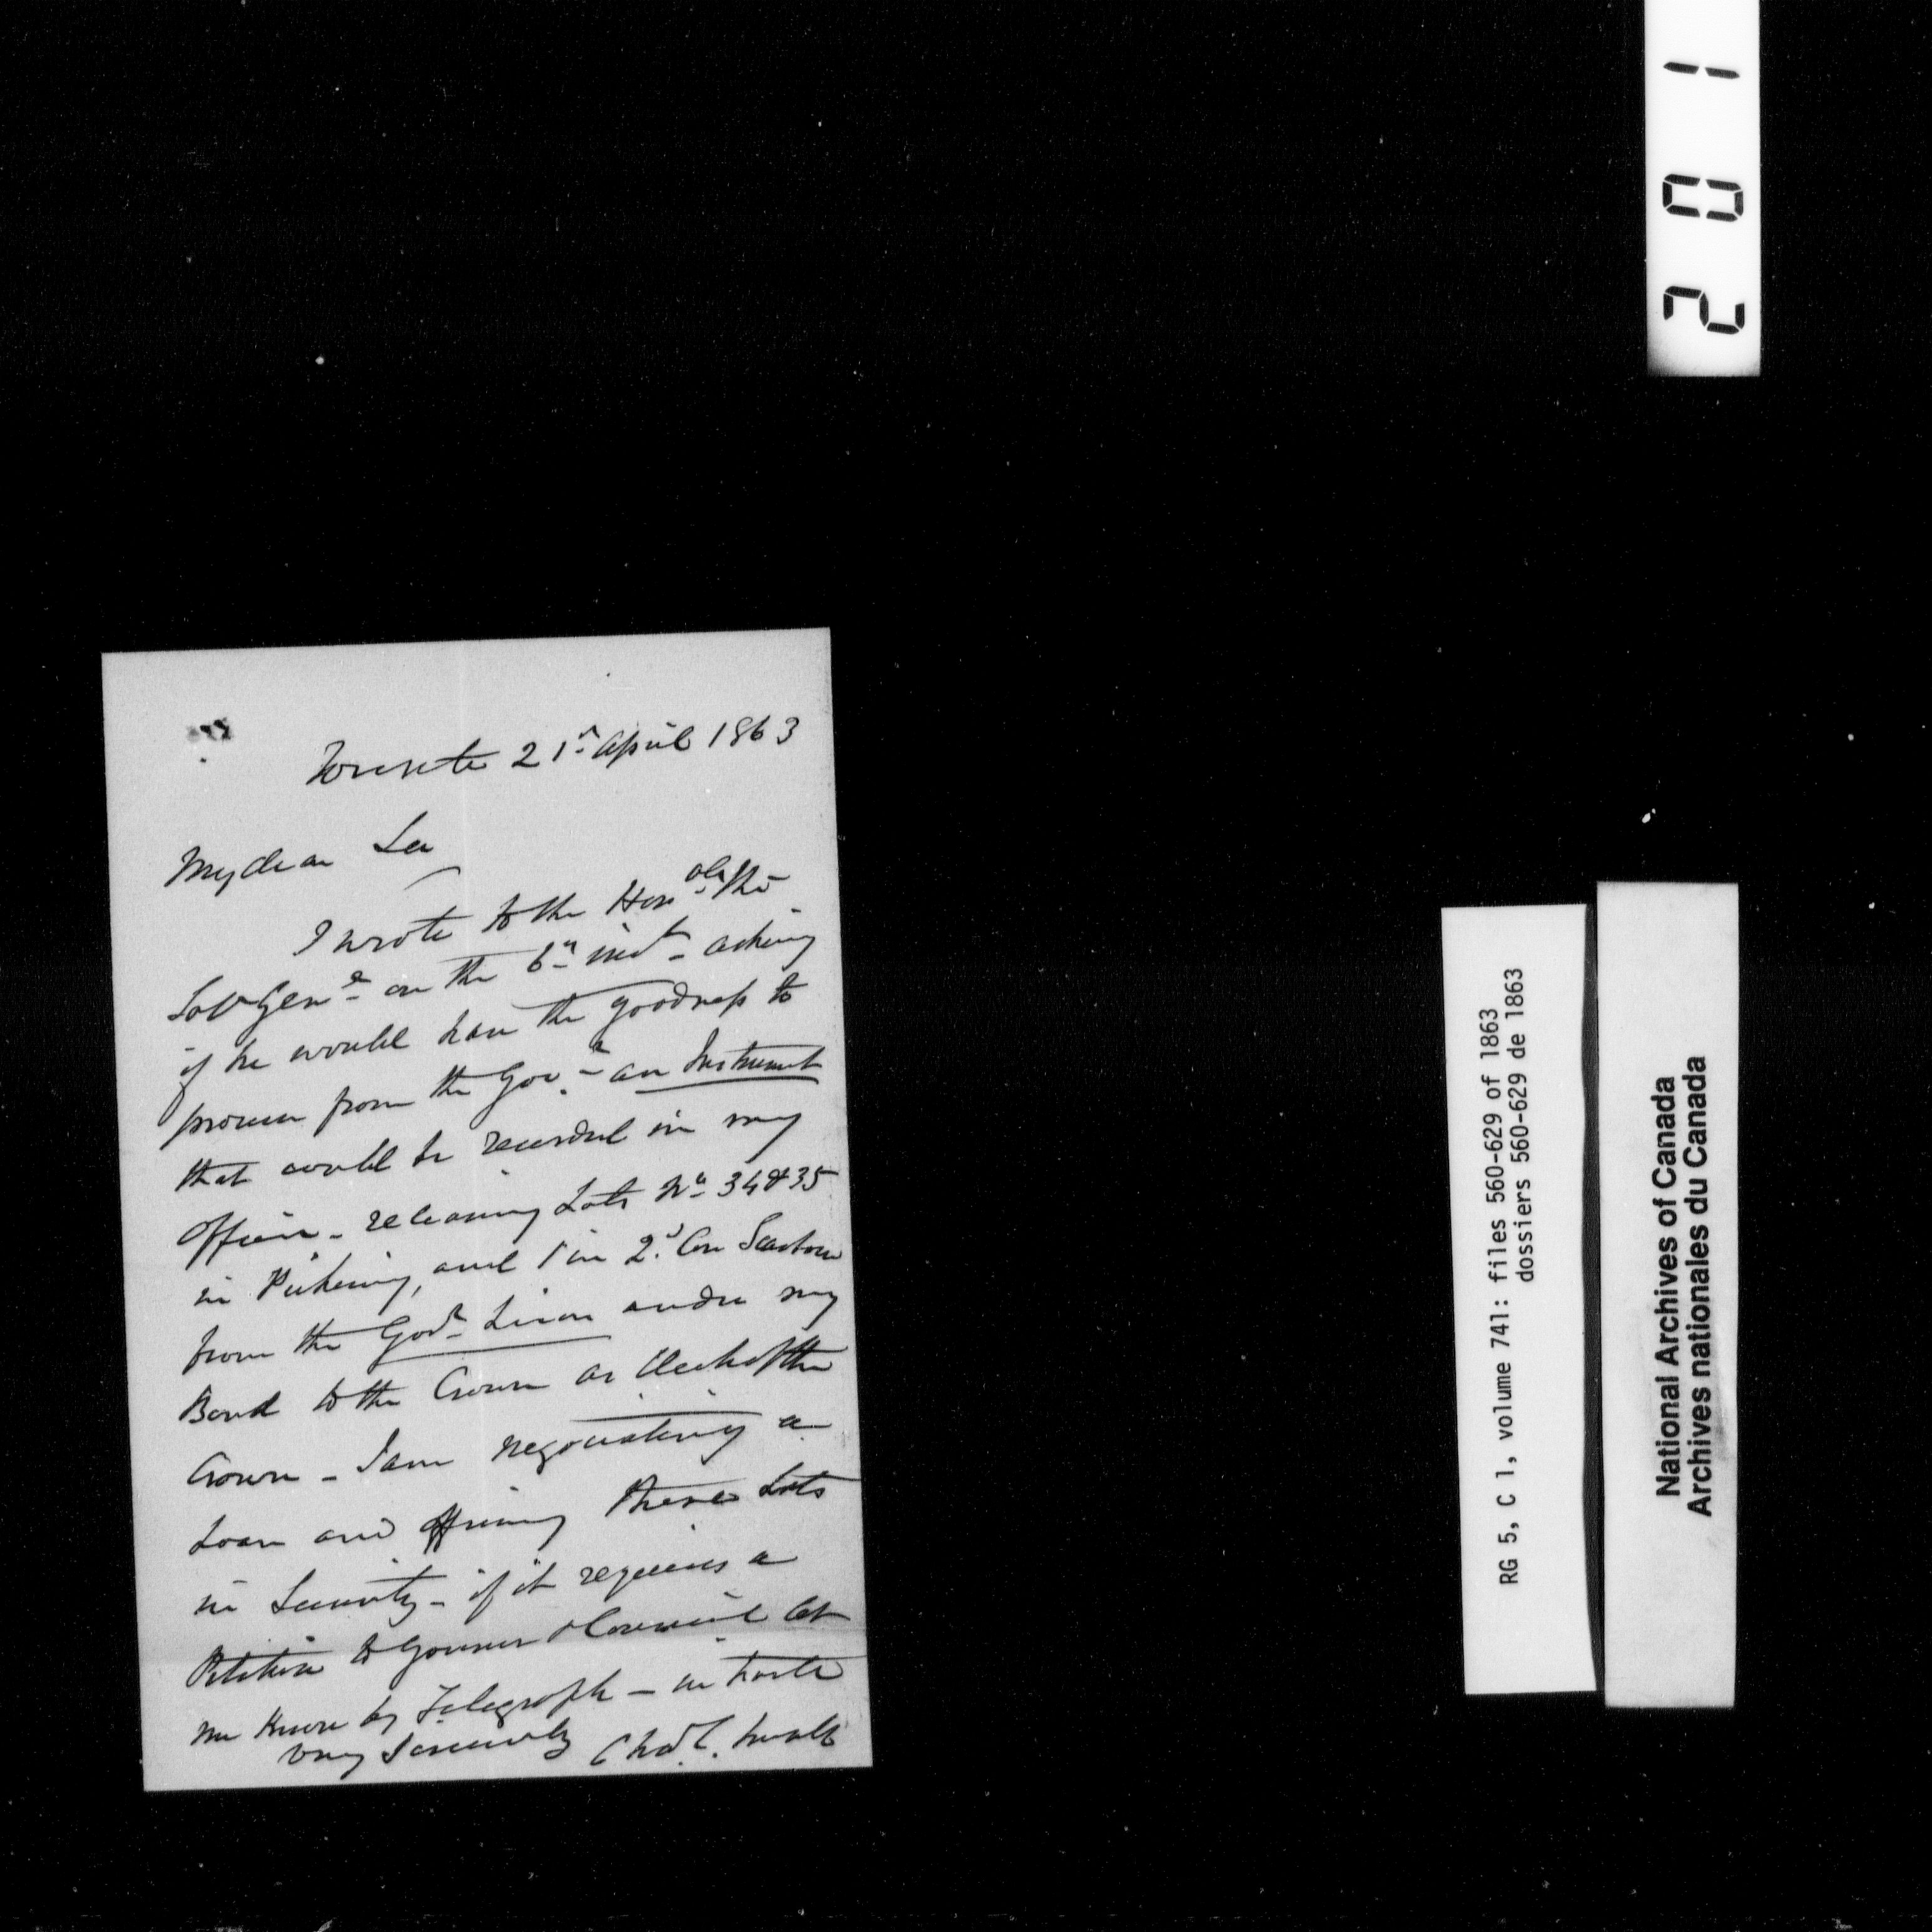 Toronto 21st April 1863
My dear Sir
I wrote to the Honoble the
Sol Genl on the 6th inst - asking
if he would have the goodness to
procure from the Govt - an Instrument
that could be recorded in my
office - releasing Lots No 34 & 35
in Pickering, and 1 in 2d Con Scarboro
from the Govt Lien under my
Bond to the Crown as Clerk of the
Crown - I am negociating a
Loan and offering these Lots
in Security - if it requires a
Petition to Governor & Council let
me know by Telegraph - in haste
very sincerely Chas C. Small
201
RG 5, C 1, volume 741: files 560-629 of 1863
dossiers 560-629 de 1863
National Archives of Canada
Archives nationales du Canada